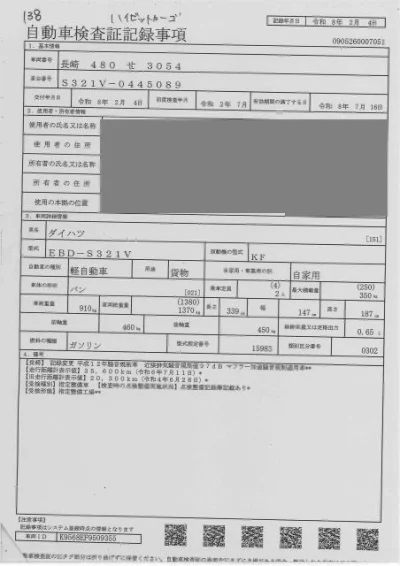 138 ハイゼットカーゴ
記録年月日 令和 8年 2月 4日
自動車検査証記録事項
0905260007051
1. 基本情報
車両番号 長崎 480 せ 3054
車台番号 S321V-0445089
交付年月日 令和 8年 2月 4日 初度検査年月 令和 2年 7月 有効期間の満了する日 令和 8年 7月 16日
2. 使用者・所有者情報
使用者の氏名又は名称
使用者の住所
所有者の氏名又は名称
所有者の住所
使用の本拠の位置
3. 車両詳細情報
車名 ダイハツ [151]
型式 EBD-S321V 原動機の型式 KF
自動車の種別 軽自動車 用途 貨物 自家用・事業用の別 自家用
車体の形状 バン [021] 乗車定員 (4) 2人 最大積載量 (250) 350kg
車両重量 910kg 車両総重量 (1380) 1370kg 長さ 339cm 幅 147cm 高さ 187cm
前軸重 460kg 後軸重 450kg 総排気量又は定格出力 0.65L
燃料の種類 ガソリン 型式指定番号 15983 類別区分番号 0302
4. 備考
[長崎] 記録変更 平成12年騒音規制車 近接排気騒音規制値97dB マフラー加速騒音規制適用車**
[走行距離計表示値] 25,600km (令和6年7月11日)*
[旧走行距離計表示値] 20,300km (令和4年6月28日)*
[受検種別] 指定整備車 [検査時の点検整備実施状況] 点検整備記録簿記載あり*
[受検形態] 指定整備工場**
[注意事項]
記録事項はシステム登録時点の情報となります
車両ID K9568EP9509355